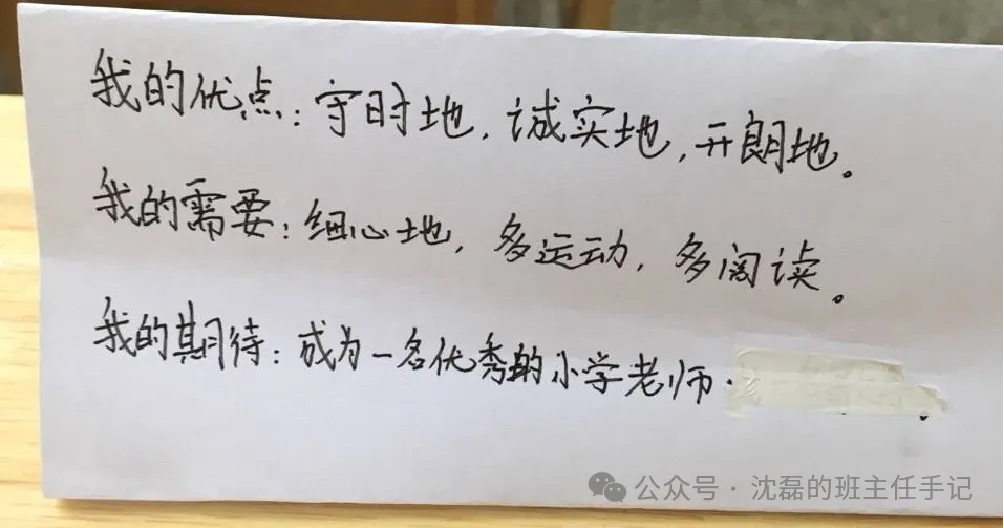 我的优点：守时地，诚实地，开朗地。
我的需要：细心地，多运动，多阅读。
我的期待：成为一名优秀的小学老师.
公众号·沈磊的班主任手记